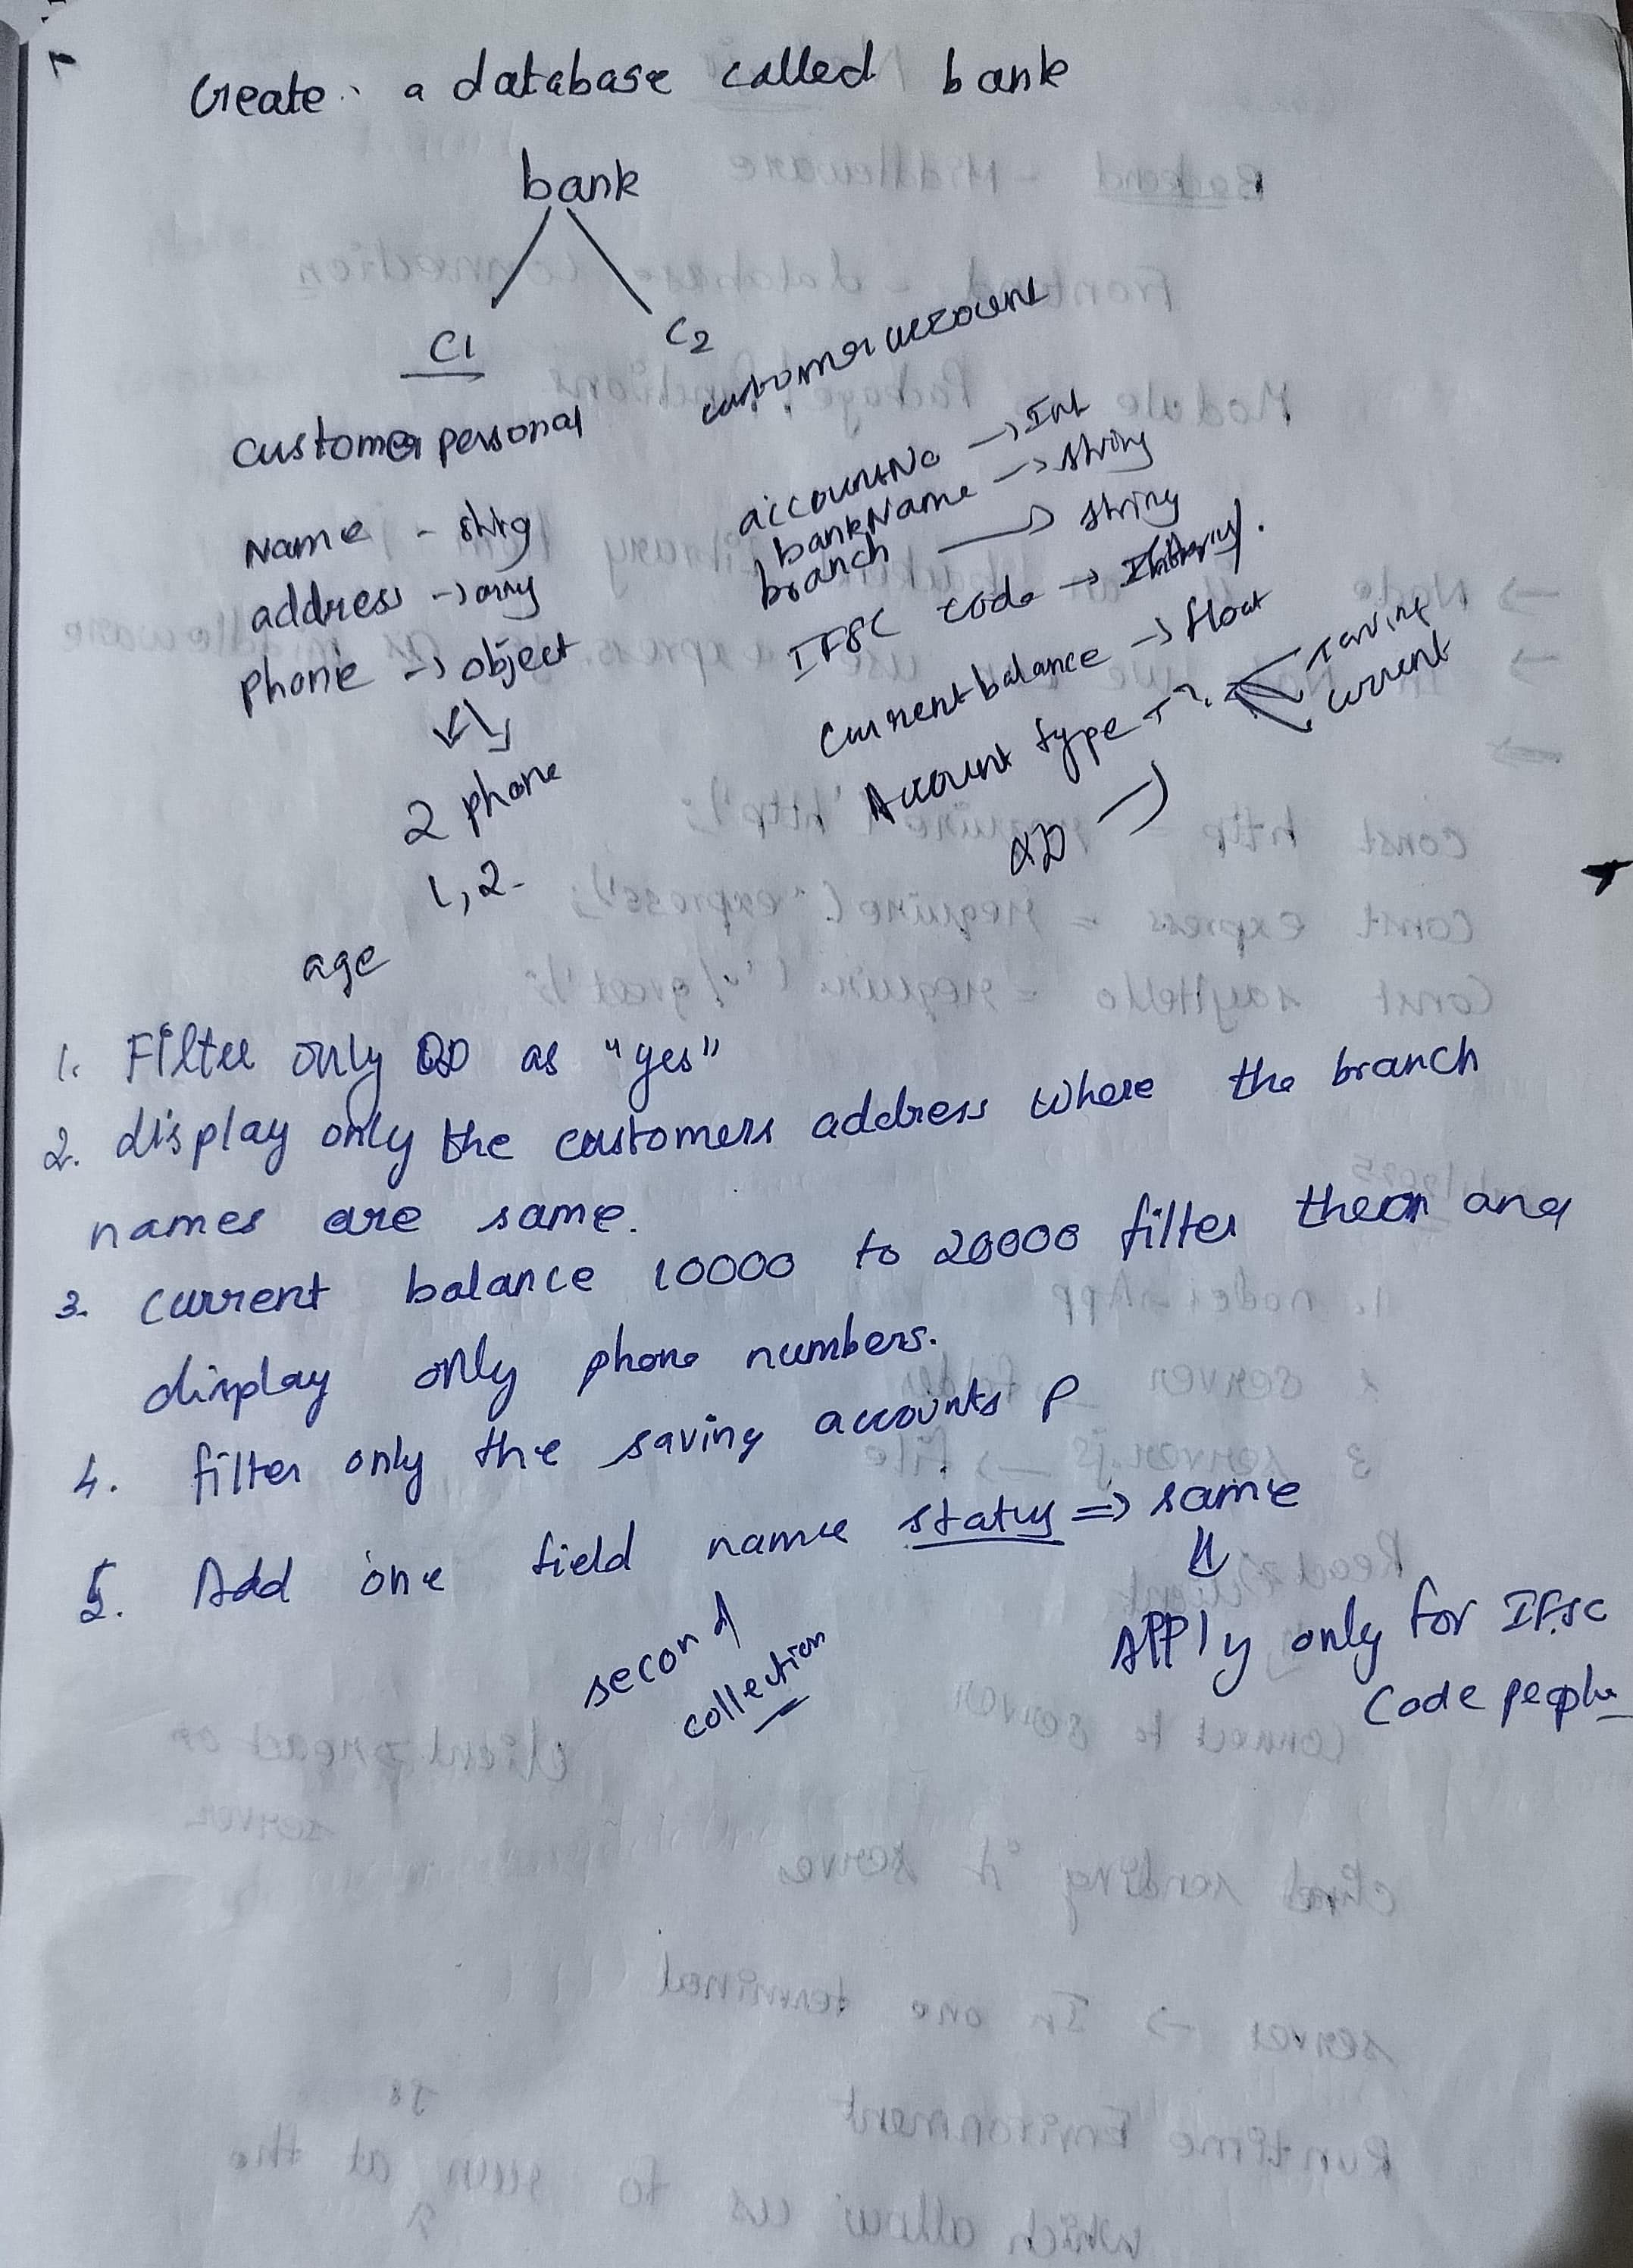 Create a database called bank
bank
C1
C2
customer personal
customer account
Name - string
address -> array
phone -> object
2 phone
1, 2
age
accountNo -> Int
bankName -> string
branch -> string
IFSC code ->
Current balance -> float
Account type -> saving
current
OD
1. Filter only OD as "yes"
2. display only the customers address where the branch
names are same.
3. current balance 10000 to 20000 filter them and
display only phone numbers.
4. filter only the saving accounts
5. Add one field name status => same
second
collection
Apply only for IFSC
Code people